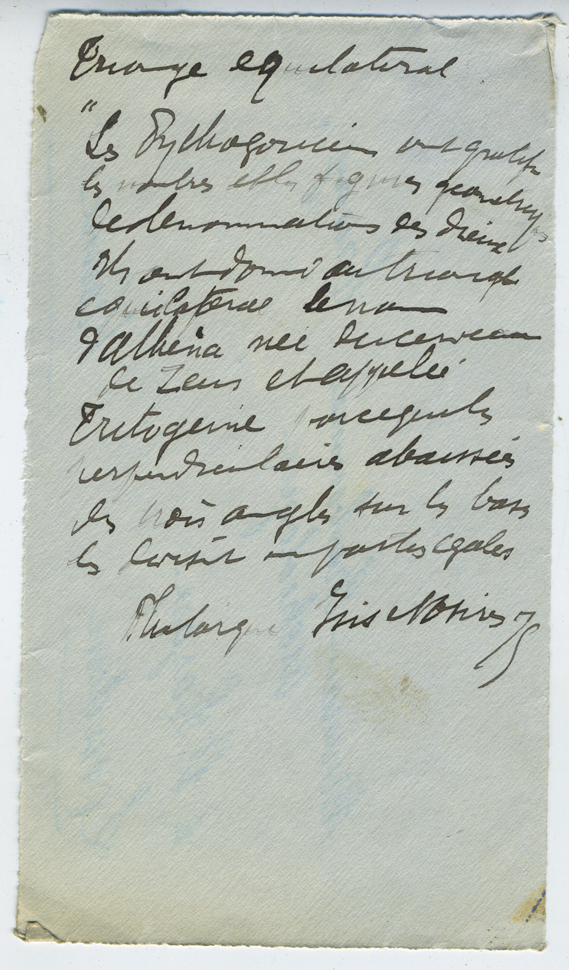 Triangle equilateral
"Les Pythagoriciens ont gratifié
les nombres et les figures géométriques
de denominations des dieux
Ils ont donné au triangle
equilateral le nom
d'Athéna née du cerveau
de Zeus et appelée
Tritogenie parce que les
perpendiculaires abaissées
des trois angles sur les bases
les divisit en parties egales
Plutarque Isis et Osiris 75